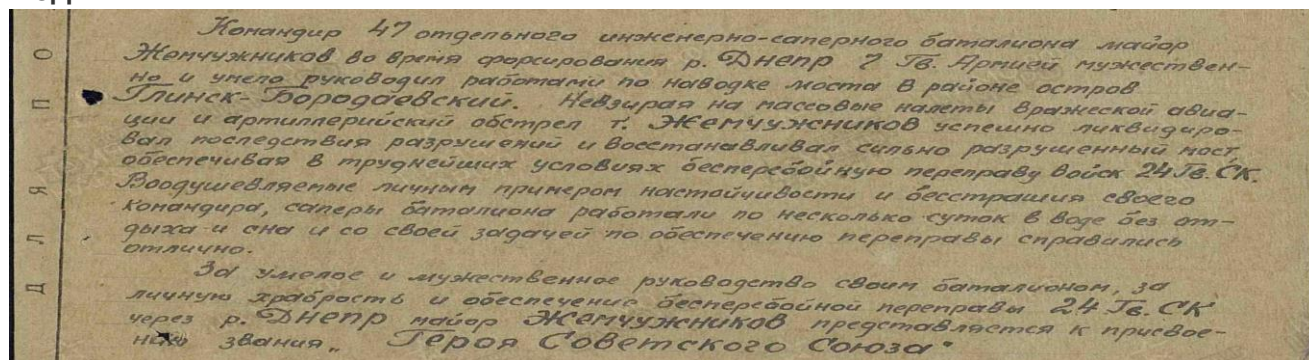 Командир 47 отдельного инженерно-саперного баталиона майор
Жемчужников во время форсирования р. Днепр 7 Гв. Армией мужествен-
но и умело руководил работами по наводке моста в районе остров
Глинск-Бородаевский. Невзирая на массовые налеты вражеской авиа-
ции и артиллерийский обстрел т. Жемчужников успешно ликвидиро-
вал последствия разрушений и восстанавливал сильно разрушенный мост,
обеспечивая в труднейших условиях бесперебойную переправу войск 24 Гв. СК.
Воодушевляемые личным примером настойчивости и бесстрашия своего
командира, саперы баталиона работали по несколько суток в воде без от-
дыха и сна и со своей задачей по обеспечению переправы справились
отлично.
За умелое и мужественное руководство своим баталионом, за
личную храбрость и обеспечение бесперебойной переправы 24 Гв. СК
через р. Днепр майор Жемчужников представляется к присвое-
нию звания „Героя Советского Союза"
ДЛЯ ПО